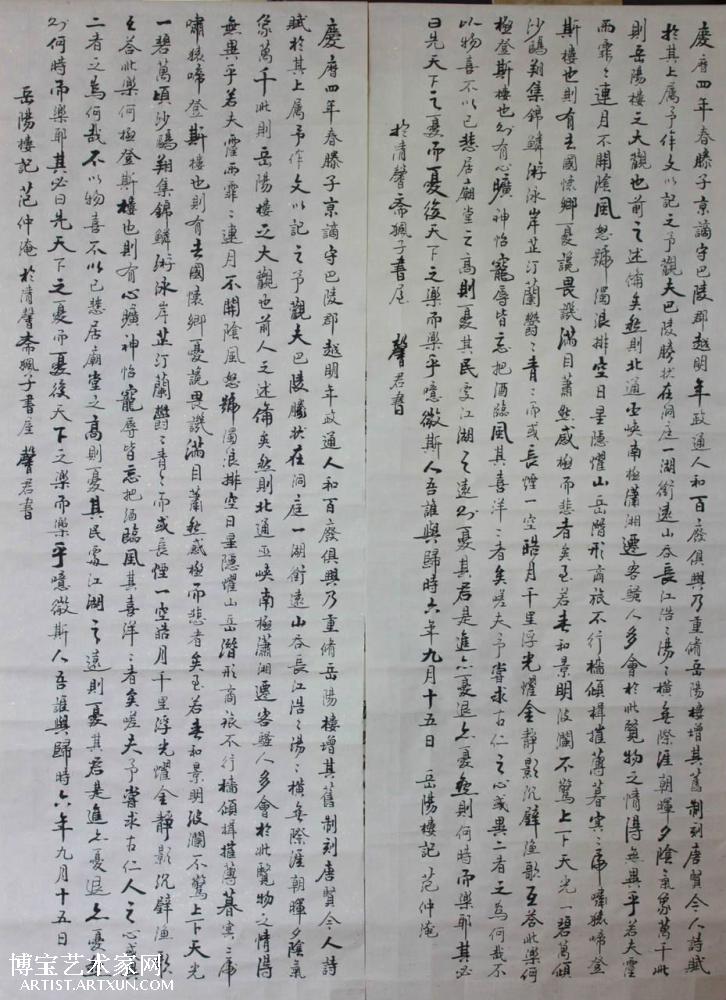 慶曆四年春滕子京謫守巴陵郡越明年政通人和百廢俱興乃重脩岳陽樓增其舊制刻唐賢今人詩賦
於其上属予作文以記之予觀夫巴陵勝狀在洞庭一湖銜遠山吞長江浩々湯々橫無際涯朝暉夕陰氣象萬千此
則岳陽樓之大觀也前之述備矣然則北通巫峽南極瀟湘遷客騷人多會於此覽物之情得無異乎若夫霪
雨霏々連月不開陰風怒號濁浪排空日星隱耀山岳潛形商旅不行檣傾楫摧薄暮冥々虎嘯猿啼登
斯樓也則有去國懷鄉憂讒畏譏滿目蕭然感極而悲者矣至若春和景明波瀾不驚上下天光一碧萬頃
沙鷗翔集錦鱗游泳岸芷汀蘭鬱々青々而或長煙一空皓月千里浮光耀金靜影沉璧漁歌互答此樂何
極登斯樓也則有心曠神怡寵辱皆忘把酒臨風其喜洋々者矣嗟夫予嘗求古仁之心或異二者之為何哉不
以物喜不以己悲居廟堂之高則憂其民處江湖之遠則憂其君是進亦憂退亦憂然則何時而樂耶其必
曰先天下之憂而憂後天下之樂而樂乎噫微斯人吾誰與歸時六年九月十五日 岳陽樓記 范仲淹
於清馨齋楓子書屋 馨君書
慶曆四年春滕子京謫守巴陵郡越明年政通人和百廢俱興乃重脩岳陽樓增其舊制刻唐賢今人詩
賦於其上属予作文以記之予觀夫巴陵勝狀在洞庭一湖銜遠山吞長江浩々湯々橫無際涯朝暉夕陰氣
象萬千此則岳陽樓之大觀也前人之述備矣然則北通巫峽南極瀟湘遷客騷人多會於此覽物之情得
無異乎若夫霪雨霏々連月不開陰風怒號濁浪排空日星隱耀山岳潛形商旅不行檣傾楫摧薄暮冥々虎
嘯猿啼登斯樓也則有去國懷鄉憂讒畏譏滿目蕭然感極而悲者矣至若春和景明波瀾不驚上下天光
一碧萬頃沙鷗翔集錦鱗游泳岸芷汀蘭鬱々青々而或長煙一空皓月千里浮光耀金靜影沉璧漁歌
互答此樂何極登斯樓也則有心曠神怡寵辱皆忘把酒臨風其喜洋々者矣嗟夫予嘗求古仁人之心或
二者之為何哉不以物喜不以己悲居廟堂之高則憂其民處江湖之遠則憂其君是進亦憂退亦憂
則何時而樂耶其必曰先天下之憂而憂後天下之樂而樂乎噫微斯人吾誰與歸時六年九月十五日
岳陽樓記 范仲淹 於清馨齋楓子書屋 馨君書
博宝艺术家网
ARTIST.ARTXUN.COM